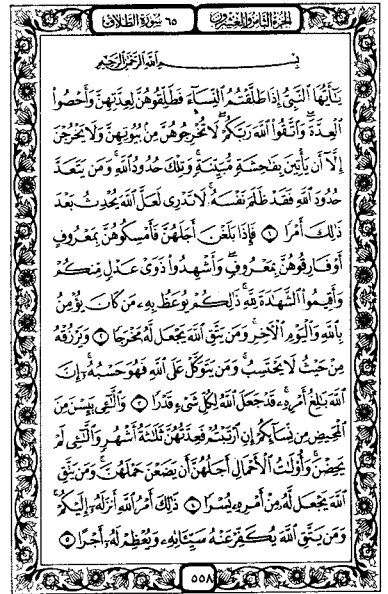 الجزء الثامن والعشرون ٦٥ سورة الطلاق
بِسْمِ ٱللَّهِ ٱلرَّحْمَٰنِ ٱلرَّحِيمِ
يَٰٓأَيُّهَا ٱلنَّبِىُّ إِذَا طَلَّقْتُمُ ٱلنِّسَآءَ فَطَلِّقُوهُنَّ لِعِدَّتِهِنَّ وَأَحْصُوا۟
ٱلْعِدَّةَ ۖ وَٱتَّقُوا۟ ٱللَّهَ رَبَّكُمْ ۖ لَا تُخْرِجُوهُنَّ مِنۢ بُيُوتِهِنَّ وَلَا يَخْرُجْنَ
إِلَّآ أَن يَأْتِينَ بِفَٰحِشَةٍ مُّبَيِّنَةٍ ۚ وَتِلْكَ حُدُودُ ٱللَّهِ ۚ وَمَن يَتَعَدَّ
حُدُودَ ٱللَّهِ فَقَدْ ظَلَمَ نَفْسَهُۥ ۚ لَا تَدْرِى لَعَلَّ ٱللَّهَ يُحْدِثُ بَعْدَ
ذَٰلِكَ أَمْرًا ١ فَإِذَا بَلَغْنَ أَجَلَهُنَّ فَأَمْسِكُوهُنَّ بِمَعْرُوفٍ
أَوْ فَارِقُوهُنَّ بِمَعْرُوفٍ وَأَشْهِدُوا۟ ذَوَىْ عَدْلٍ مِّنكُمْ
وَأَقِيمُوا۟ ٱلشَّهَٰدَةَ لِلَّهِ ۚ ذَٰلِكُمْ يُوعَظُ بِهِۦ مَن كَانَ يُؤْمِنُ
بِٱللَّهِ وَٱلْيَوْمِ ٱلْءَاخِرِ ۚ وَمَن يَتَّقِ ٱللَّهَ يَجْعَل لَّهُۥ مَخْرَجًا ٢ وَيَرْزُقْهُ
مِنْ حَيْثُ لَا يَحْتَسِبُ ۚ وَمَن يَتَوَكَّلْ عَلَى ٱللَّهِ فَهُوَ حَسْبُهُۥٓ ۚ إِنَّ
ٱللَّهَ بَٰلِغُ أَمْرِهِۦ ۚ قَدْ جَعَلَ ٱللَّهُ لِكُلِّ شَىْءٍ قَدْرًا ٣ وَٱلَّٰٓـِٔى يَئِسْنَ مِنَ
ٱلْمَحِيضِ مِن نِّسَآئِكُمْ إِنِ ٱرْتَبْتُمْ فَعِدَّتُهُنَّ ثَلَٰثَةُ أَشْهُرٍ وَٱلَّٰٓـِٔى لَمْ
يَحِضْنَ ۚ وَأُو۟لَٰتُ ٱلْأَحْمَالِ أَجَلُهُنَّ أَن يَضَعْنَ حَمْلَهُنَّ ۚ وَمَن يَتَّقِ
ٱللَّهَ يَجْعَل لَّهُۥ مِنْ أَمْرِهِۦ يُسْرًا ٤ ذَٰلِكَ أَمْرُ ٱللَّهِ أَنزَلَهُۥٓ إِلَيْكُمْ ۚ
وَمَن يَتَّقِ ٱللَّهَ يُكَفِّرْ عَنْهُ سَيِّـَٔاتِهِۦ وَيُعْظِمْ لَهُۥٓ أَجْرًا ٥
٥٥٨